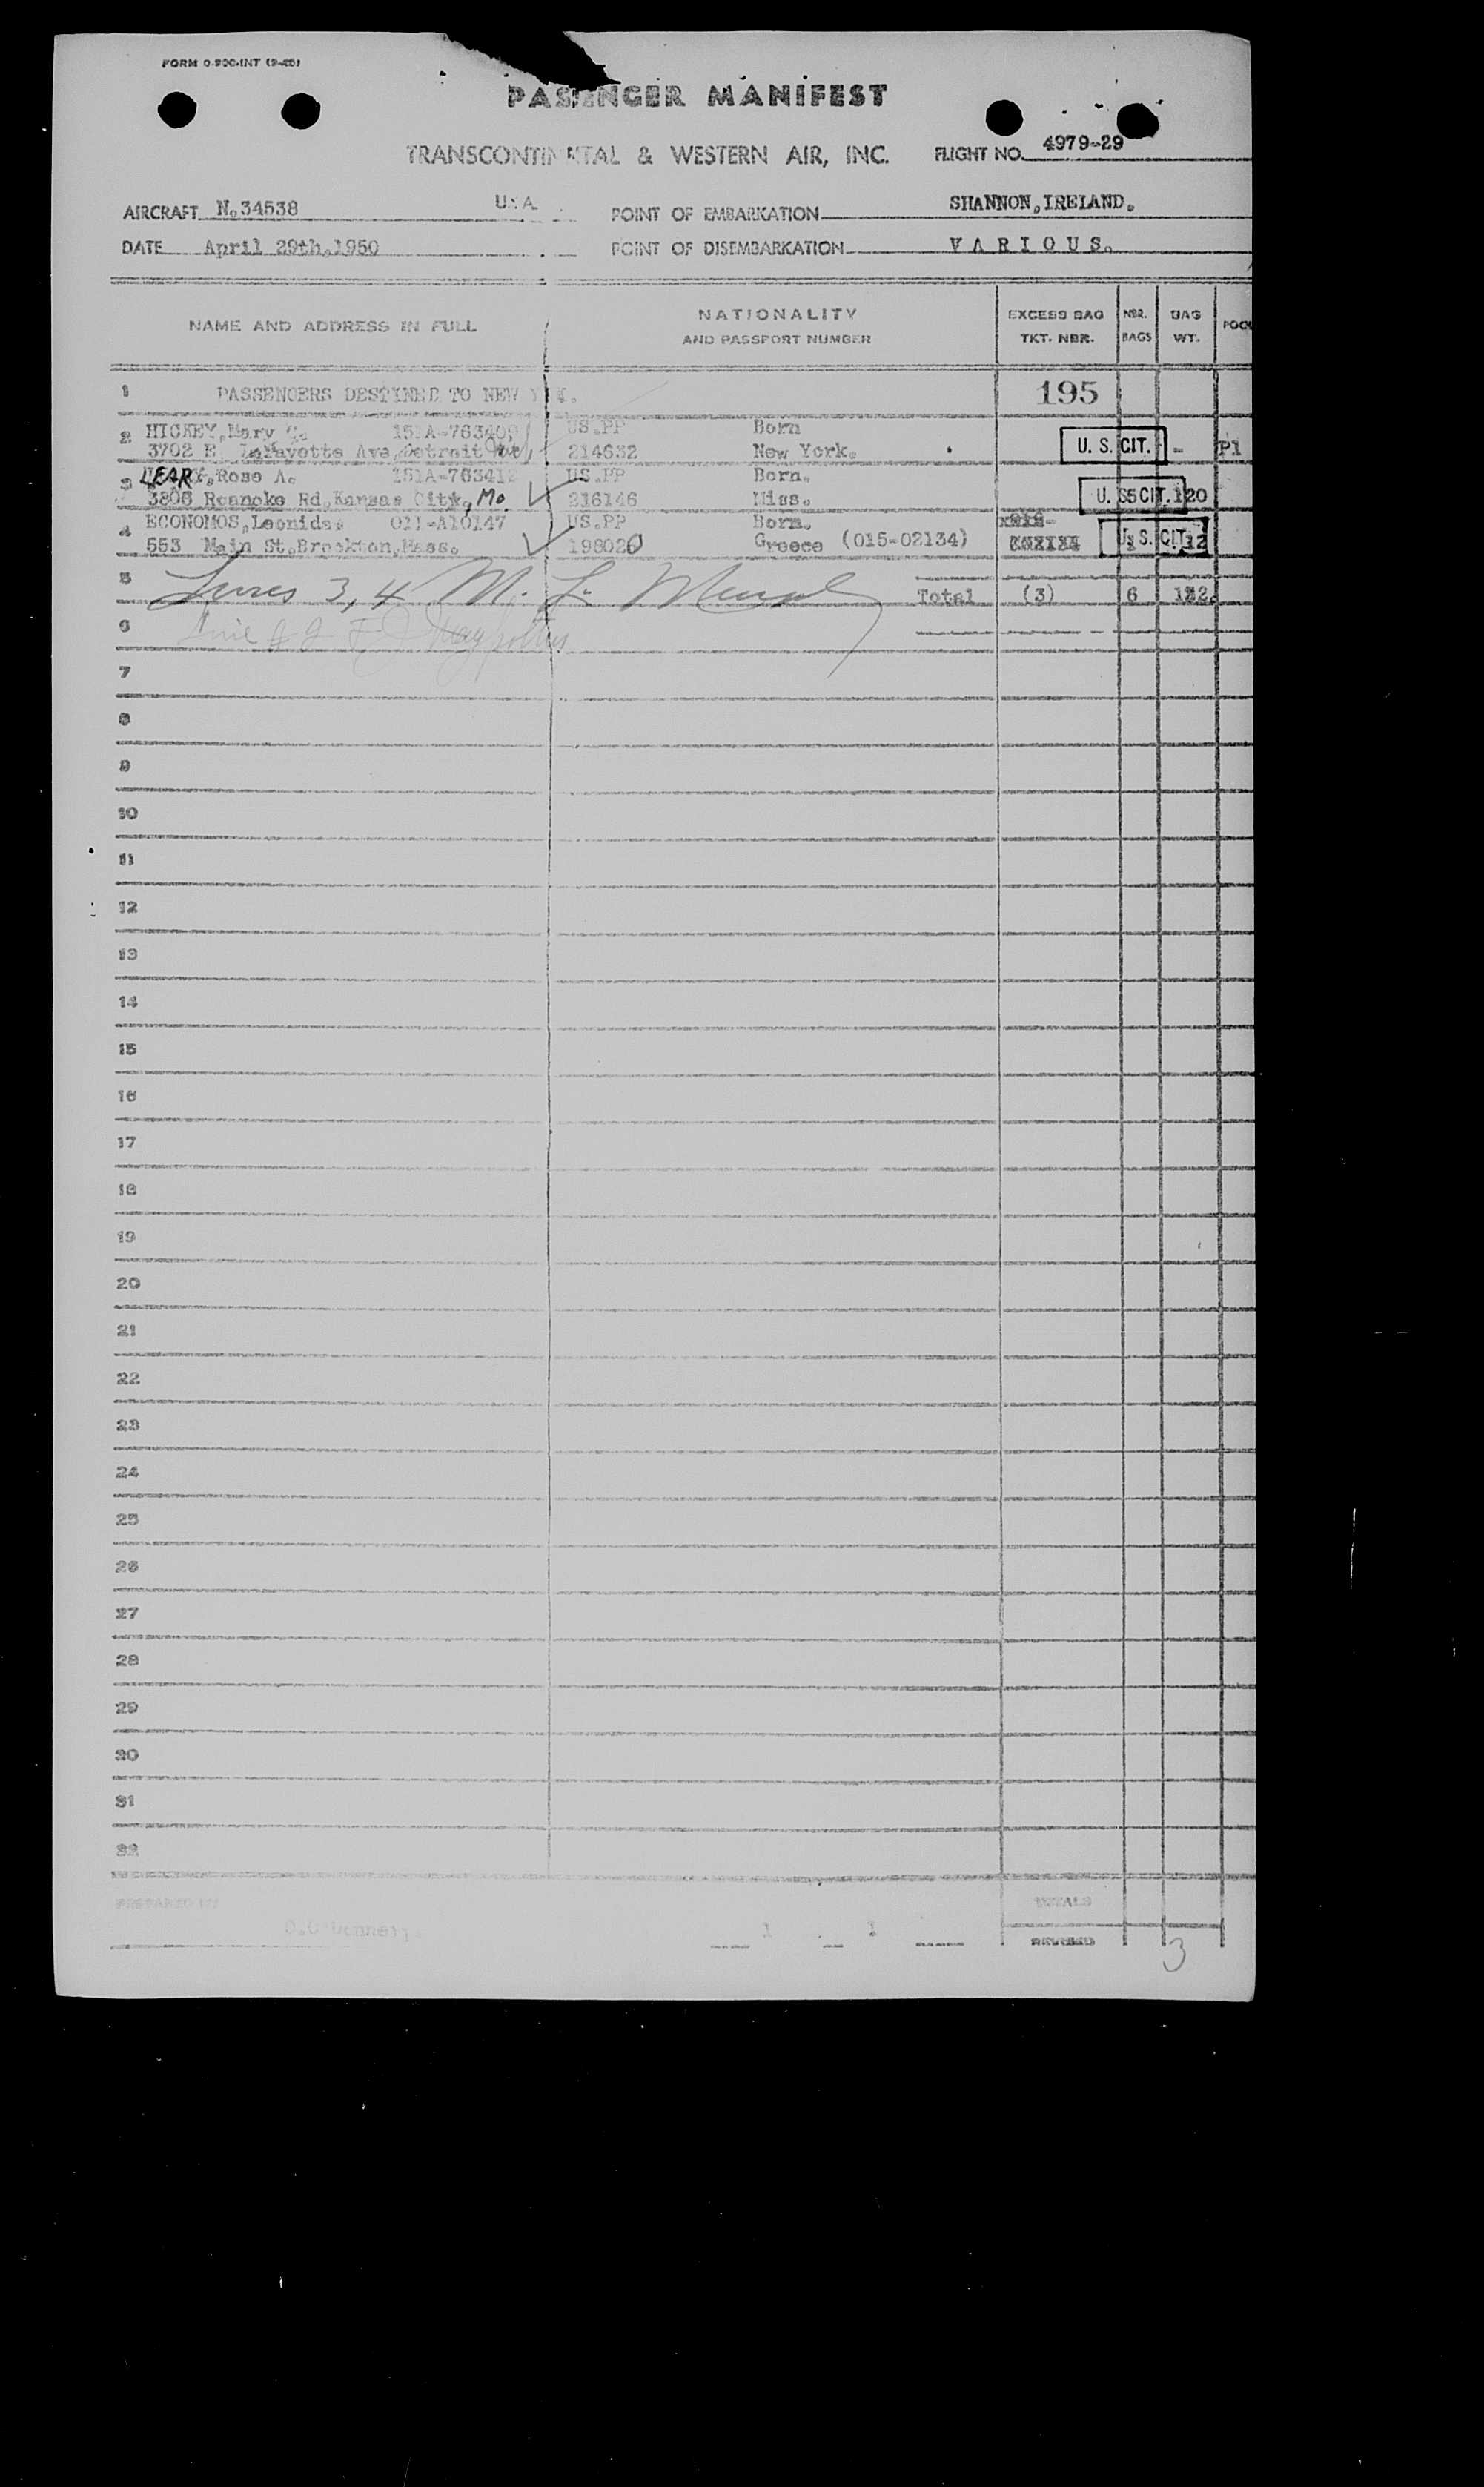 FORM 0-900-INT (9-48)
PASSENGER MANIFEST
TRANSCONTINENTAL & WESTERN AIR, INC.
FLIGHT NO. 4979-29
AIRCRAFT N.34538 U.S.A.
POINT OF EMBARKATION SHANNON, IRELAND.
DATE April 29th, 1950
POINT OF DISEMBARKATION V A R I O U S.
NAME AND ADDRESS IN FULL
NATIONALITY
AND PASSPORT NUMBER
EXCESS BAG
TKT. NBR.
NBR.
BAGS
BAG
WT.
1 PASSENGERS DESTINED TO NEW YORK. 195
2 HICKEY, Mary 151A-763409 US.PP Born
3702 E. LaFayette Ave, Detroit 214632 New York. U. S. CIT. - P1
3 LEARY, Rose A. 151A-763412 US.PP Born.
3806 Roanoke Rd, Kansas City, Mo. 216146 Miss. U. S. CIT. 5 120
4 ECONOMOS, Leonidas 011-A10147 US.PP Born.
553 Main St. Brockton, Mass. 198020 Greece (015-02134) U. S. CIT. 1 12
5 Lines 3, 4 M. L. Total (3) 6 132.
6
7
8
9
10
11
12
13
14
15
16
17
18
19
20
21
22
23
24
25
26
27
28
29
30
31
32
PREPARED BY
TOTALS
1 1
3